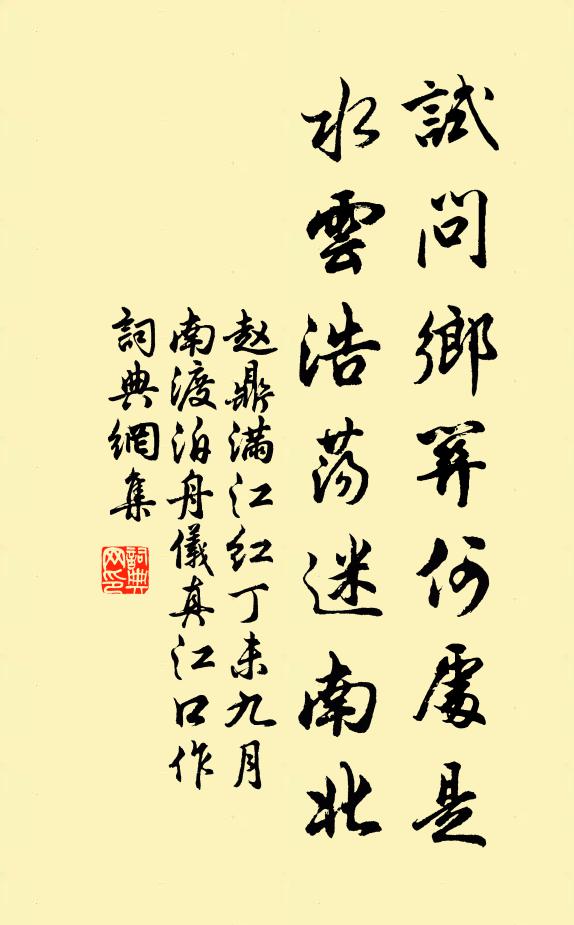 試問鄉關何處是
水雲浩蕩迷南北
赵鼎满江红丁未九月
南渡泊舟儀真江口作
詞典網集
詞典
网印